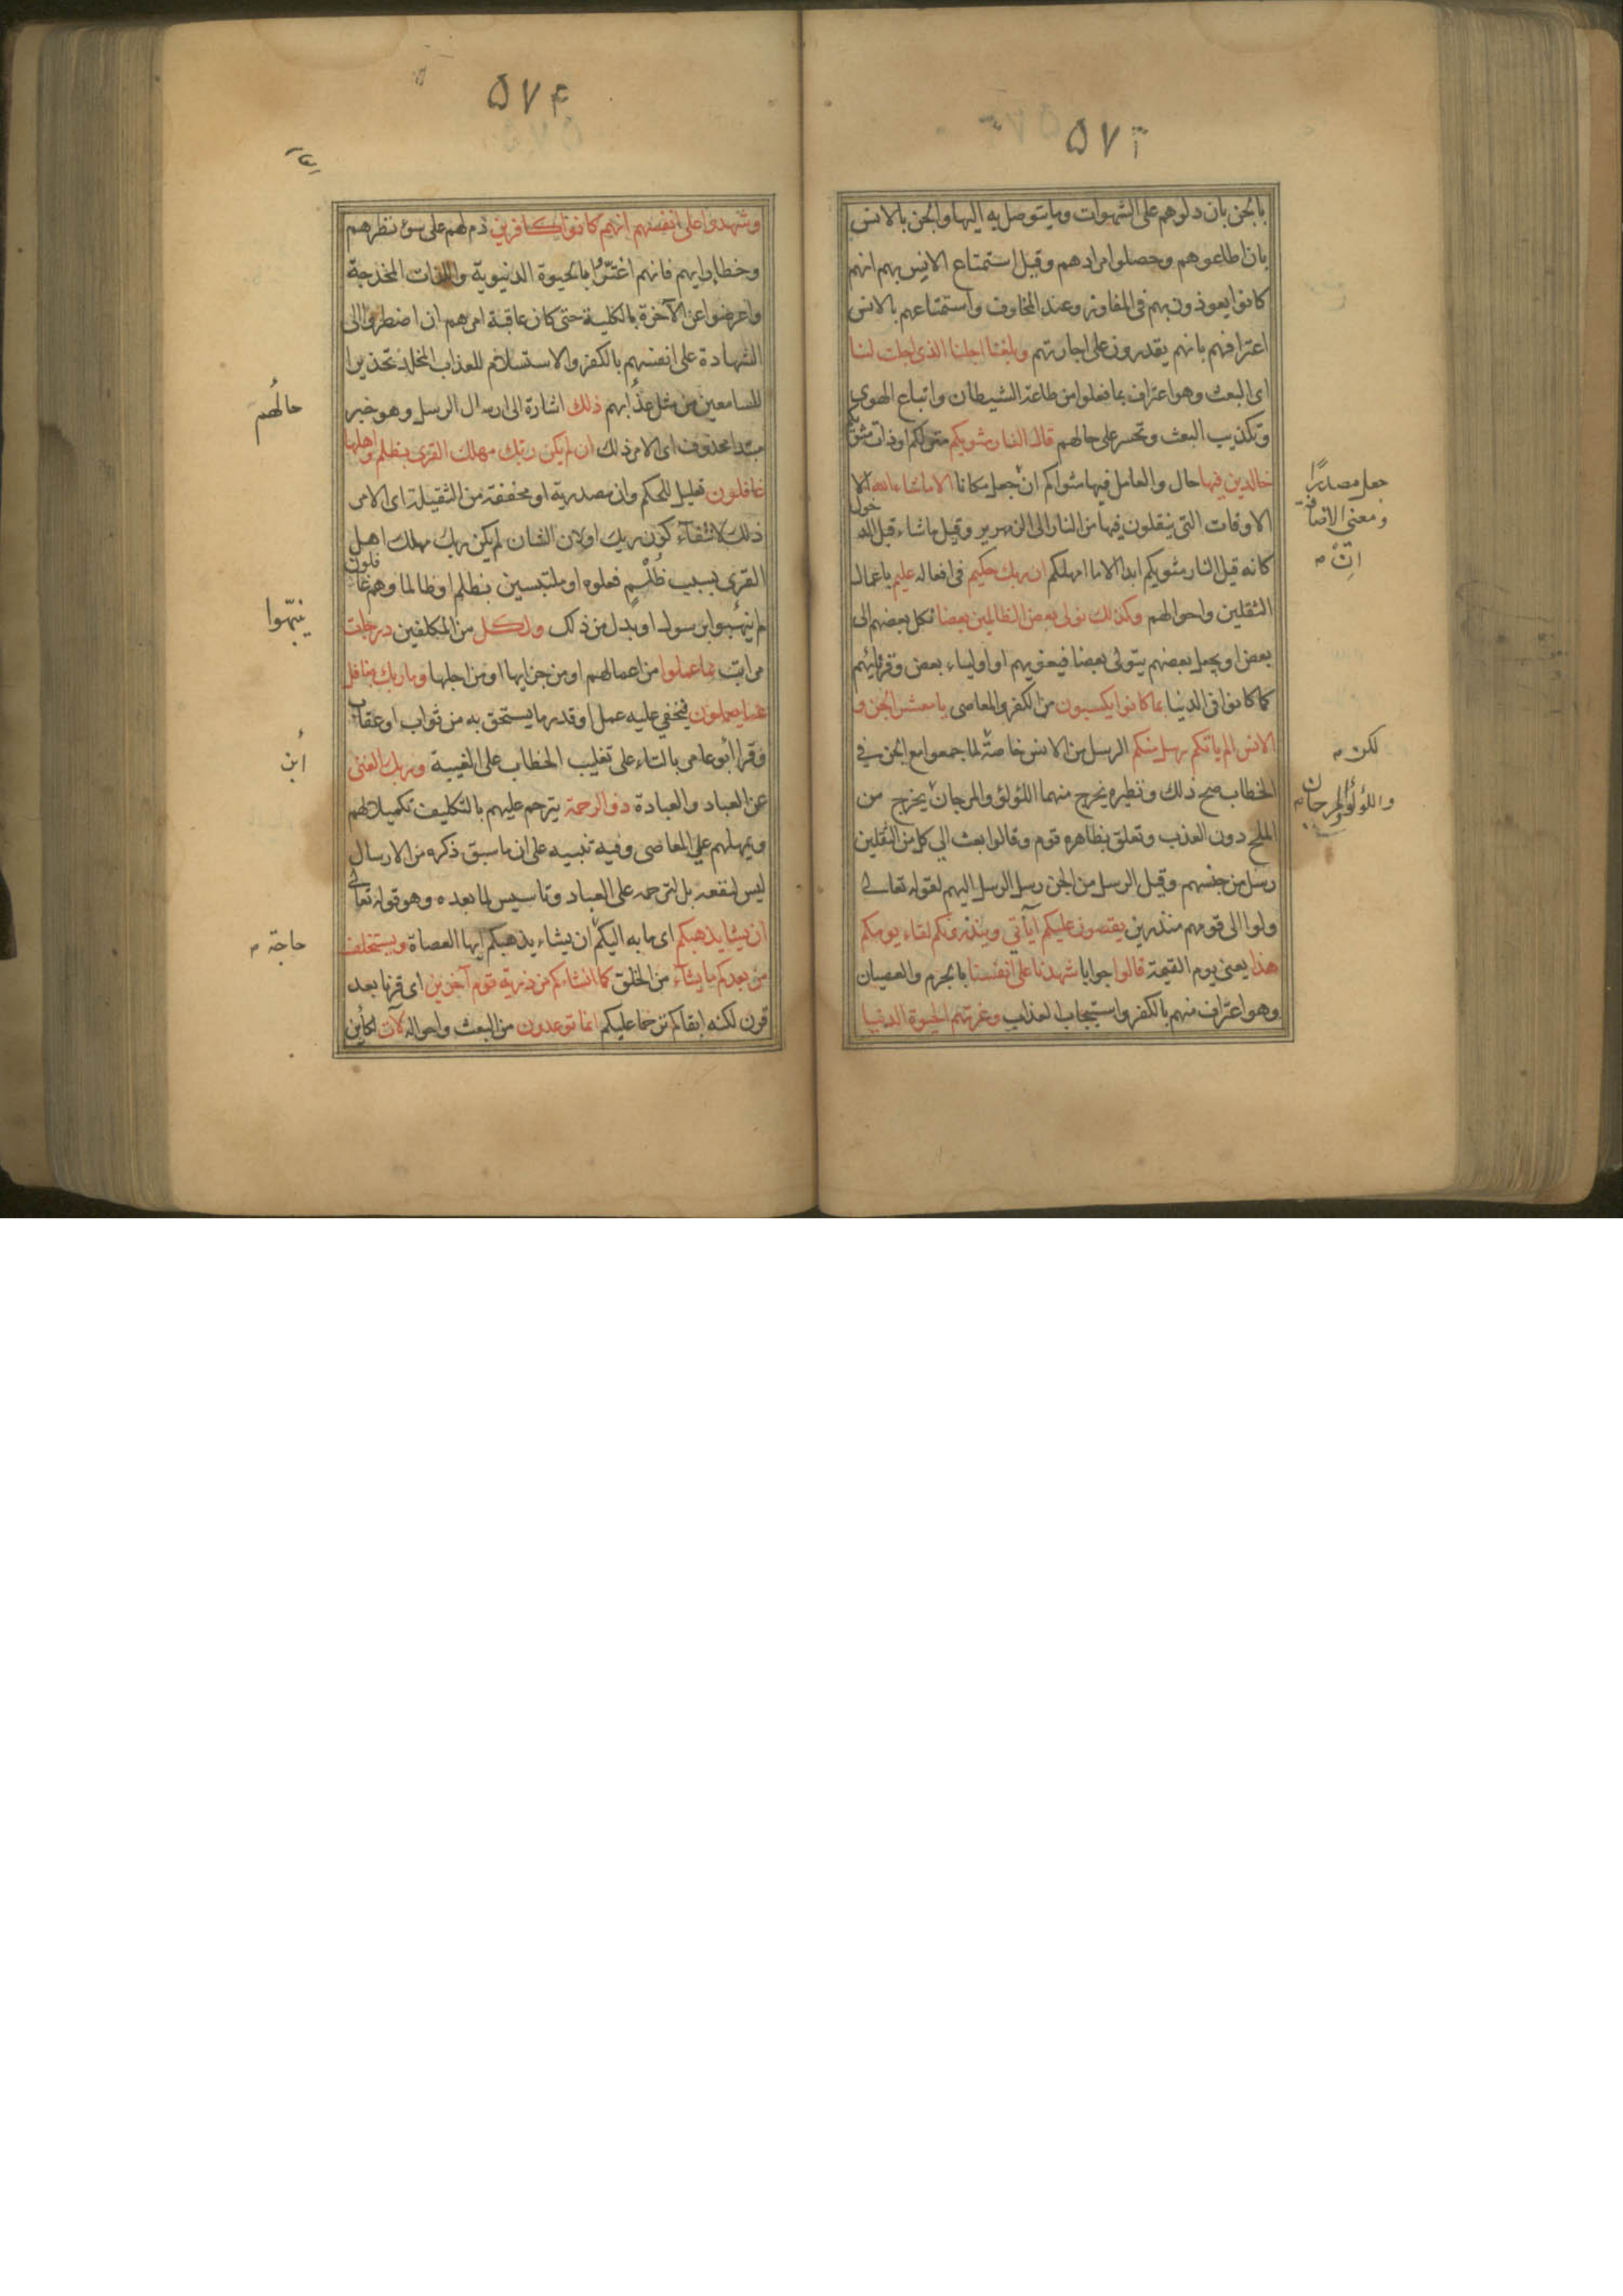 ۵۷۳
بالجن بان دلوهم على الشهوات وما يتوصل به اليها والجن بالانس
بان اطاعوهم وحصلوا مرادهم وقيل استمتاع الانس بهم انهم
كانوا يعوذون بهم فى المفاوز وعند المخاوف واستمتاعهم بالانس
اعترافهم بانهم يقدرون على اجارتهم وبلغنا اجلنا الذى اجلت لنا
اى البعث وهو اعتراف بما فعلوا من طاعة الشيطان واتباع الهوى
وتكذيب البعث وتحسر على حالهم قال النار مثويكم منزلكم او ذات مثويكم
خالدين فيها حال والعامل فيها مثواكم ان جعل مكانا الا ما شاء الله الا
الاوقات التى ينقلون فيها من النار الى الزمهرير وقيل ما شاء قبل الدخول
كانه قيل النار مثويكم ابدا الا ما امهلكم ان ربك حكيم فى افعاله عليم باعمال
الثقلين واحوالهم وكذلك نولى بعض الظالمين بعضا نكل بعضهم الى
بعض او يجعل بعضهم يتولى بعضا فيغويهم او اولياء بعض وقرنائهم
كما كانوا فى الدنيا بما كانوا يكسبون من الكفر والمعاصى يا معشر الجن و
الانس الم ياتكم رسل منكم الرسل من الانس خاصة لما جمعوا مع الجن فى
الخطاب صح ذلك ونظيره يخرج منهما اللؤلؤ والمرجان يخرج من
الملح دون العذب وتعلق بظاهره قوم وقالوا بعث الى كل من الثقلين
رسل من جنسهم وقيل الرسل من الجن رسل الرسل اليهم لقوله تعالى
ولوا الى قومهم منذرين يقصون عليكم آياتي وينذرونكم لقاء يومكم
هذا يعنى يوم القيمة قالوا جوابا شهدنا على انفسنا بالجرم والعصيان
وهو اعتراف منهم بالكفر واستيجاب العذاب وغرتهم الحيوة الدنيا
جعل مصدرًا
ومعنى الاضافة
ان
لكن
واللؤلؤ والمرجان
۵۷۴
وشهدوا على انفسهم انهم كانوا كافرين ذم لهم على سوء نظرهم
وخطا رايهم فانهم اغتروا بالحيوة الدنيوية واللذات المخدجة
واعرضوا عن الآخرة بالكلية حتى كان عاقبة امرهم ان اضطروا الى
الشهادة على انفسهم بالكفر والاستسلام للعذاب المخلد تحذيرا
للسامعين من مثل عذابهم ذلك اشارة الى ارسال الرسل وهو خبر
مبتدا محذوف اى الامر ذلك ان لم يكن ربك مهلك القرى بظلم واهلها
غافلون تعليل للحكم وان مصدرية او مخففة من الثقيلة اى الامر
ذلك لانتفاء كون ربك اولان الشان لم يكن ربك مهلك اهل
القرى بسبب ظلم فعلوه او ملتبسين بظلم او ظالما وهم غافلون
لم ينبهوا برسول او بدل من ذلك ولكل من المكلفين درجات
مراتب مما عملوا من اعمالهم او من جزايها او من اجلها وما ربك بغافل
عما يعملون فيخفي عليه عمل او قدر ما يستحق به من ثواب او عقاب
وقرأ أبو عامر بالتاء على تغليب الخطاب على الغيبة وربك الغنى
عن العباد والعبادة ذو الرحمة يترحم عليهم بالتكليف تكميلا لهم
ويمهلهم على المعاصى وفيه تنبيه على ان ما سبق ذكره من الارسال
ليس لنفعه بل لترحمه على العباد وتاسيس لما بعده وهو قوله تعالى
ان يشا يذهبكم اى ما به اليكم ان يشاء يذهبكم ايها العصاة ويستخلف
من بعدكم ما يشاء من الخلق كما انشاءكم من ذرية قوم آخرين اى قرنا بعد
قرن لكنه ابقاكم ترحما عليكم انما توعدون من البعث واحواله لآت لكأين
حالهم
ينبّهوا
ابن
حاجة